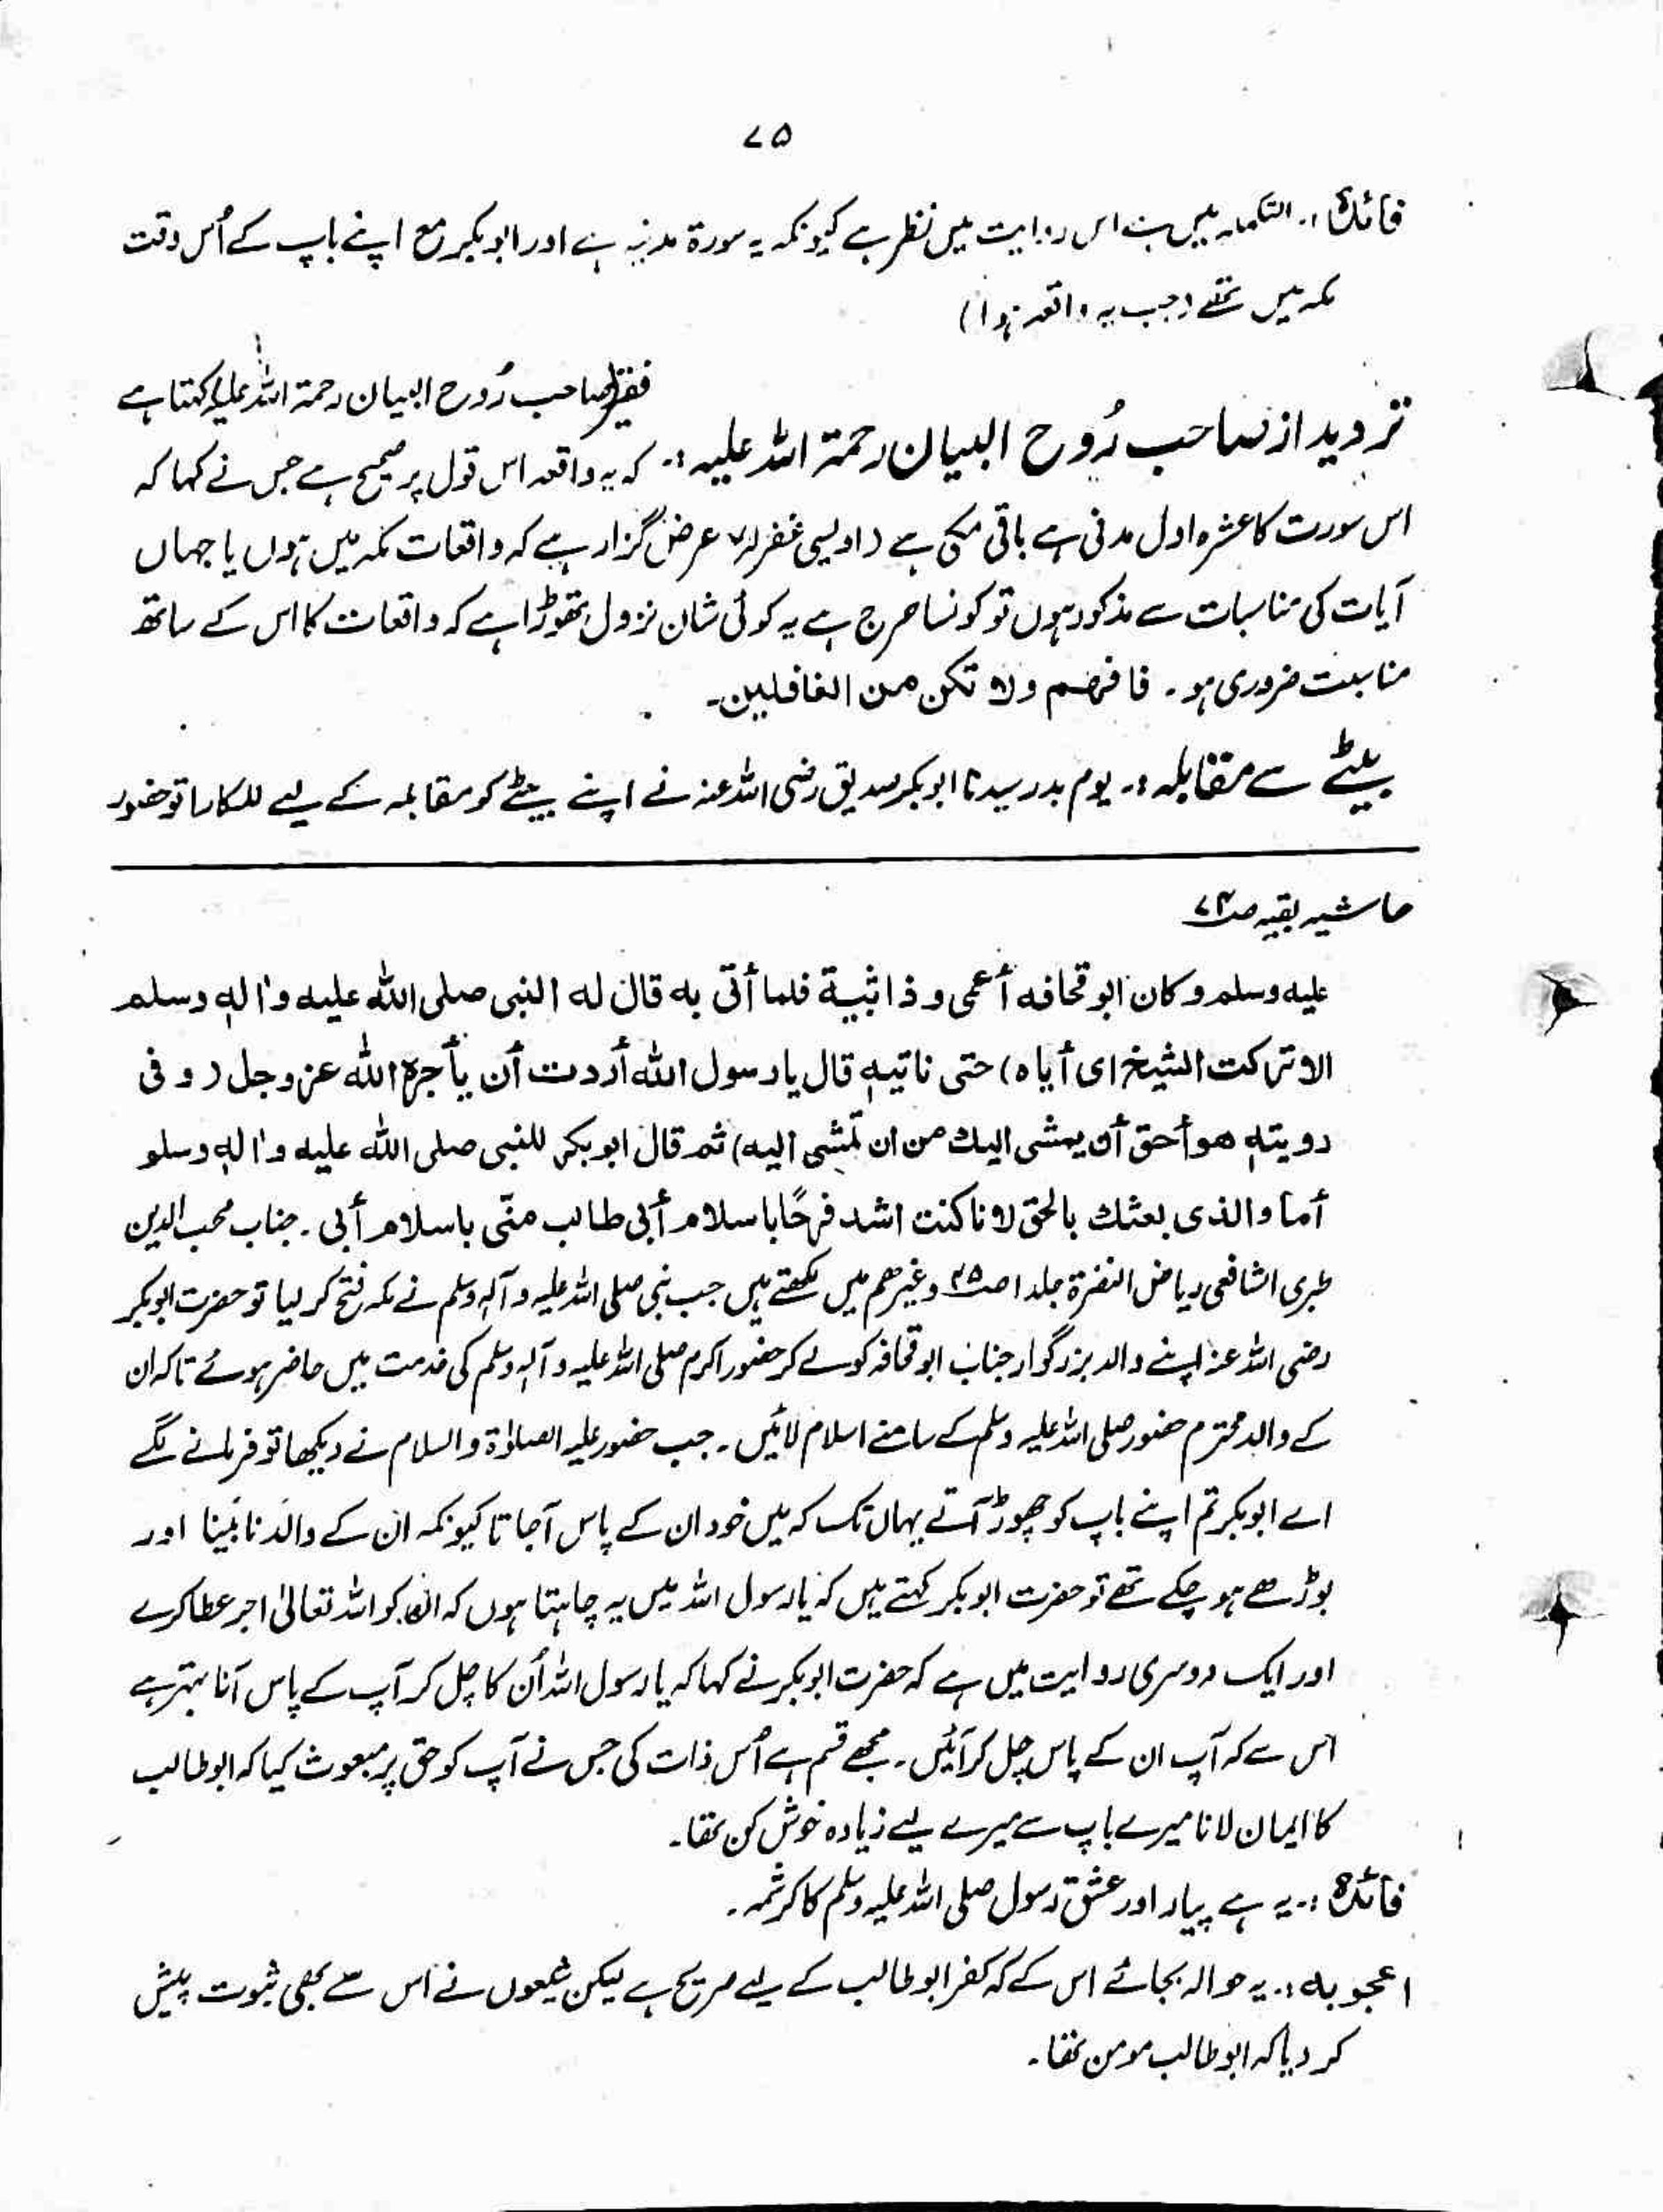 ۷۵
فائدہ :۔ التکملہ میں ہے اس روایت میں نظر ہے کیونکہ یہ سورۃ مدنیہ ہے اور ابوبکر مع اپنے باپ کے اُس وقت
مکہ میں تھے (جب یہ واقعہ ہوا)
تردید از صاحب رُوح البیان رحمۃ اللہ علیہ :۔ فقیر (صاحب رُوح البیان رحمۃ اللہ علیہ) کہتا ہے
کہ یہ واقعہ اس قول پر صحیح ہے جس نے کہا کہ
اس سورت کا عشرہ اول مدنی ہے باقی مکی ہے (اویسی غفرلہ) عرض گزار ہے کہ واقعات مکہ میں ہوں یا جہاں
آیات کی مناسبات سے مذکور ہوں تو کونسا حرج ہے یہ کوئی شان نزول تھوڑا ہے کہ واقعات کا اس کے ساتھ
مناسبت ضروری ہو ۔ فافہم ولا تکن من الغافلین۔
بیٹے سے مقابلہ :۔ یوم بدر سیدنا ابوبکر صدیق رضی اللہ عنہ نے اپنے بیٹے کو مقابلہ کے لیے للکارا تو حضور
حاشیہ بقیہ صـ۷۴
علیہ وسلم وکان ابو قحافہ أعمی و ذا شیبۃ فلما أتی به قال له النبی صلی اللہ علیه واٰلهٖ وسلم
الا ترکت الشیخ ای أباہ) حتی ناتیهٖ قال یا رسول اللہ أردت أن یأجرہ اللہ عزوجل (و فی
رویتهٖ هو أحق أن یمشی الیك من ان تمشی الیه) ثم قال ابوبکر للنبی صلی اللہ علیه واٰلهٖ وسلم
أما والذی بعثك بالحق لانا کنت اشد فرحًا باسلام أبی طالب منّی باسلام أبی ۔ جناب محب الدین
طبری الشافعی ریاض النضرۃ جلد ۱ صـ۴۵ وغیرھم میں لکھتے ہیں جب نبی صلی اللہ علیہ وآلہٖ وسلم نے مکہ فتح کر لیا تو حضرت ابوبکر
رضی اللہ عنہ اپنے والد بزرگوار جناب ابو قحافہ کو لے کر حضور اکرم صلی اللہ علیہ وآلہٖ وسلم کی خدمت میں حاضر ہوئے تاکہ ان
کے والد محترم حضور صلی اللہ علیہ وسلم کے سامنے اسلام لائیں ۔ جب حضور علیہ الصلوٰۃ والسلام نے دیکھا تو فرمانے لگے
اے ابوبکر تم اپنے باپ کو چھوڑ آتے یہاں تک کہ میں خود ان کے پاس آجاتا کیونکہ ان کے والد نابینا اور
بوڑھے ہو چکے تھے تو حضرت ابوبکر کہتے ہیں کہ یا رسول اللہ میں یہ چاہتا ہوں کہ ان کو اللہ تعالیٰ اجر عطا کرے
اور ایک دوسری روایت میں ہے کہ حضرت ابوبکر نے کہا کہ یا رسول اللہ اُن کا چل کر آپ کے پاس آنا بہتر ہے
اس سے کہ آپ ان کے پاس چل کر آئیں ۔ مجھے قسم ہے اُس ذات کی جس نے آپ کو حق پر مبعوث کیا کہ ابو طالب
کا ایمان لانا میرے باپ سے میرے لیے زیادہ خوش کن تھا۔
فائدہ :۔ یہ ہے پیار اور عشق رسول صلی اللہ علیہ وسلم کا کرشمہ ۔
اعجوبہ :۔ یہ حوالہ بجائے اس کے کہ کفر ابو طالب کے لیے صریح ہے لیکن شیعوں نے اس سے بھی ثبوت پیش
کر دیا کہ ابو طالب مومن تھا ۔